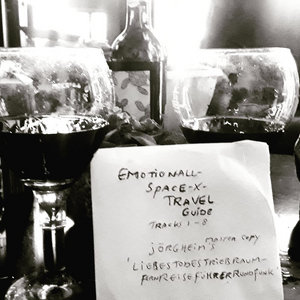 EMOTIONALL-
SPACE-X-
TRAVEL
GUIDE
TRACKS 1-8
MASTER COPY
JÖRGHEIM'S
'LIEBESTODESTRIEBRAUM-
FAHRREISEFÜHRERRUNDFUNK'